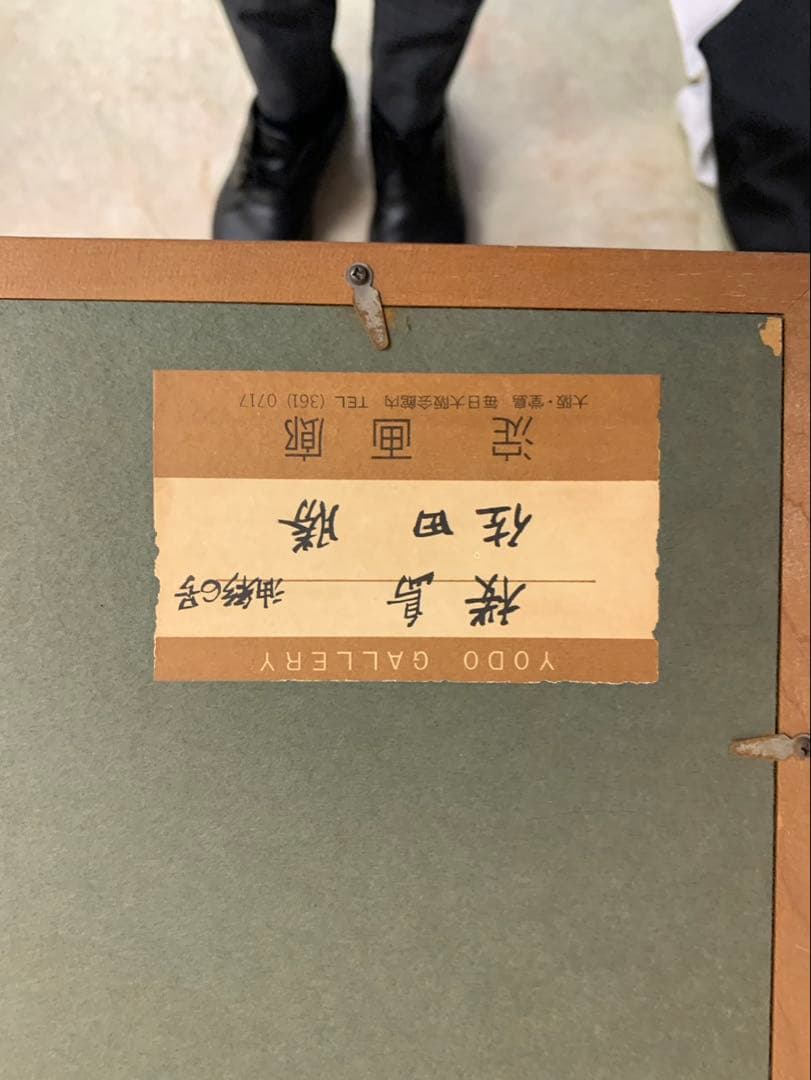 YODO GALLERY
桜島 油彩6号
佐田 勝
淀画廊
大阪・堂島 毎日大阪会館内 TEL (361) 0717